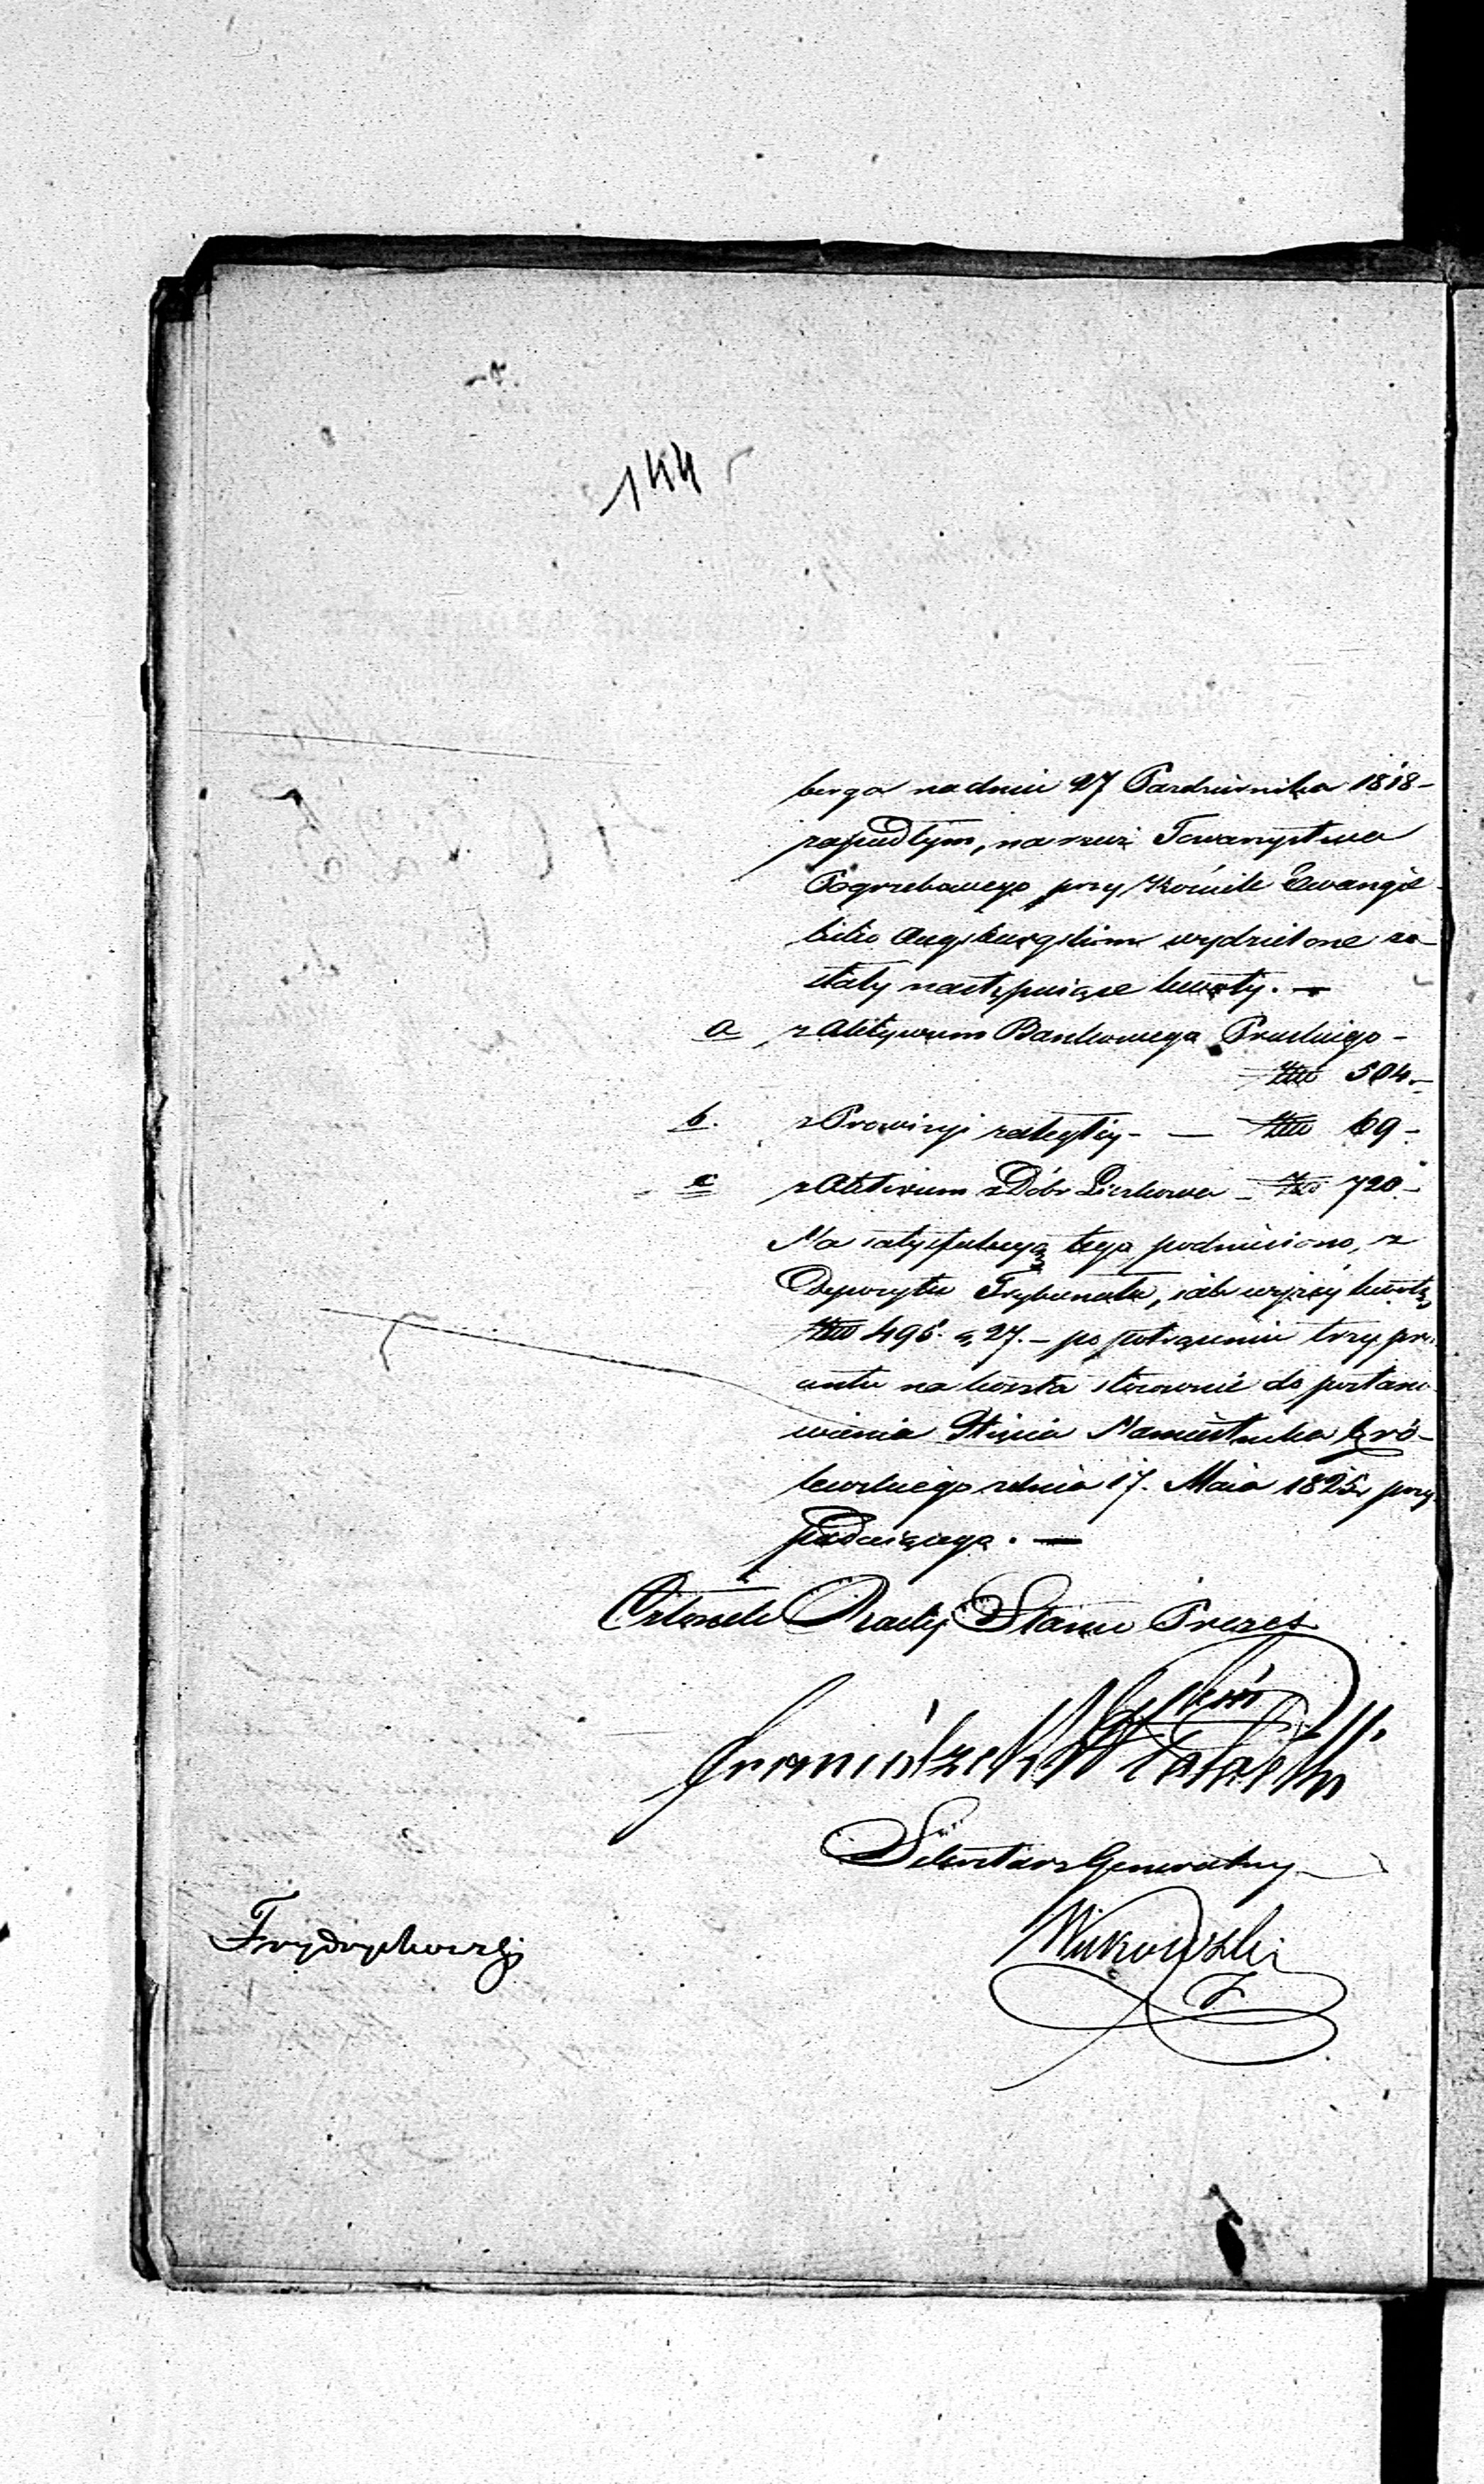 144
berga na dniu 27 Pazdziernika 1818 -
zapadłym, na rzecz Towarzystwa
Pogrzebowego przy Kościele Ewangie-
licko Augsburgskim wydzielone zo-
stały następuiące kwoty. -
a z Aktywum Bankowego Pruskiego -
504. -
b. z Prowizyi zaległey - - 69 -
c z Aktivum z Dóbr - 720. -
Na satysfakcyą tego podniesiono, z
Depozytu Trybunału, iak wyżey kwotę
495. g. 27. - po potrąceniu trzy pro-
centu na koszta stosownie do postano-
wienia Xięcia Namiestnika Kró-
lewskiego z dnia 17. Maia 1825 przy-
padaiącego. -
Członek Rady Stanu Prezes
Sekretarz Generalny
Frydrychowski